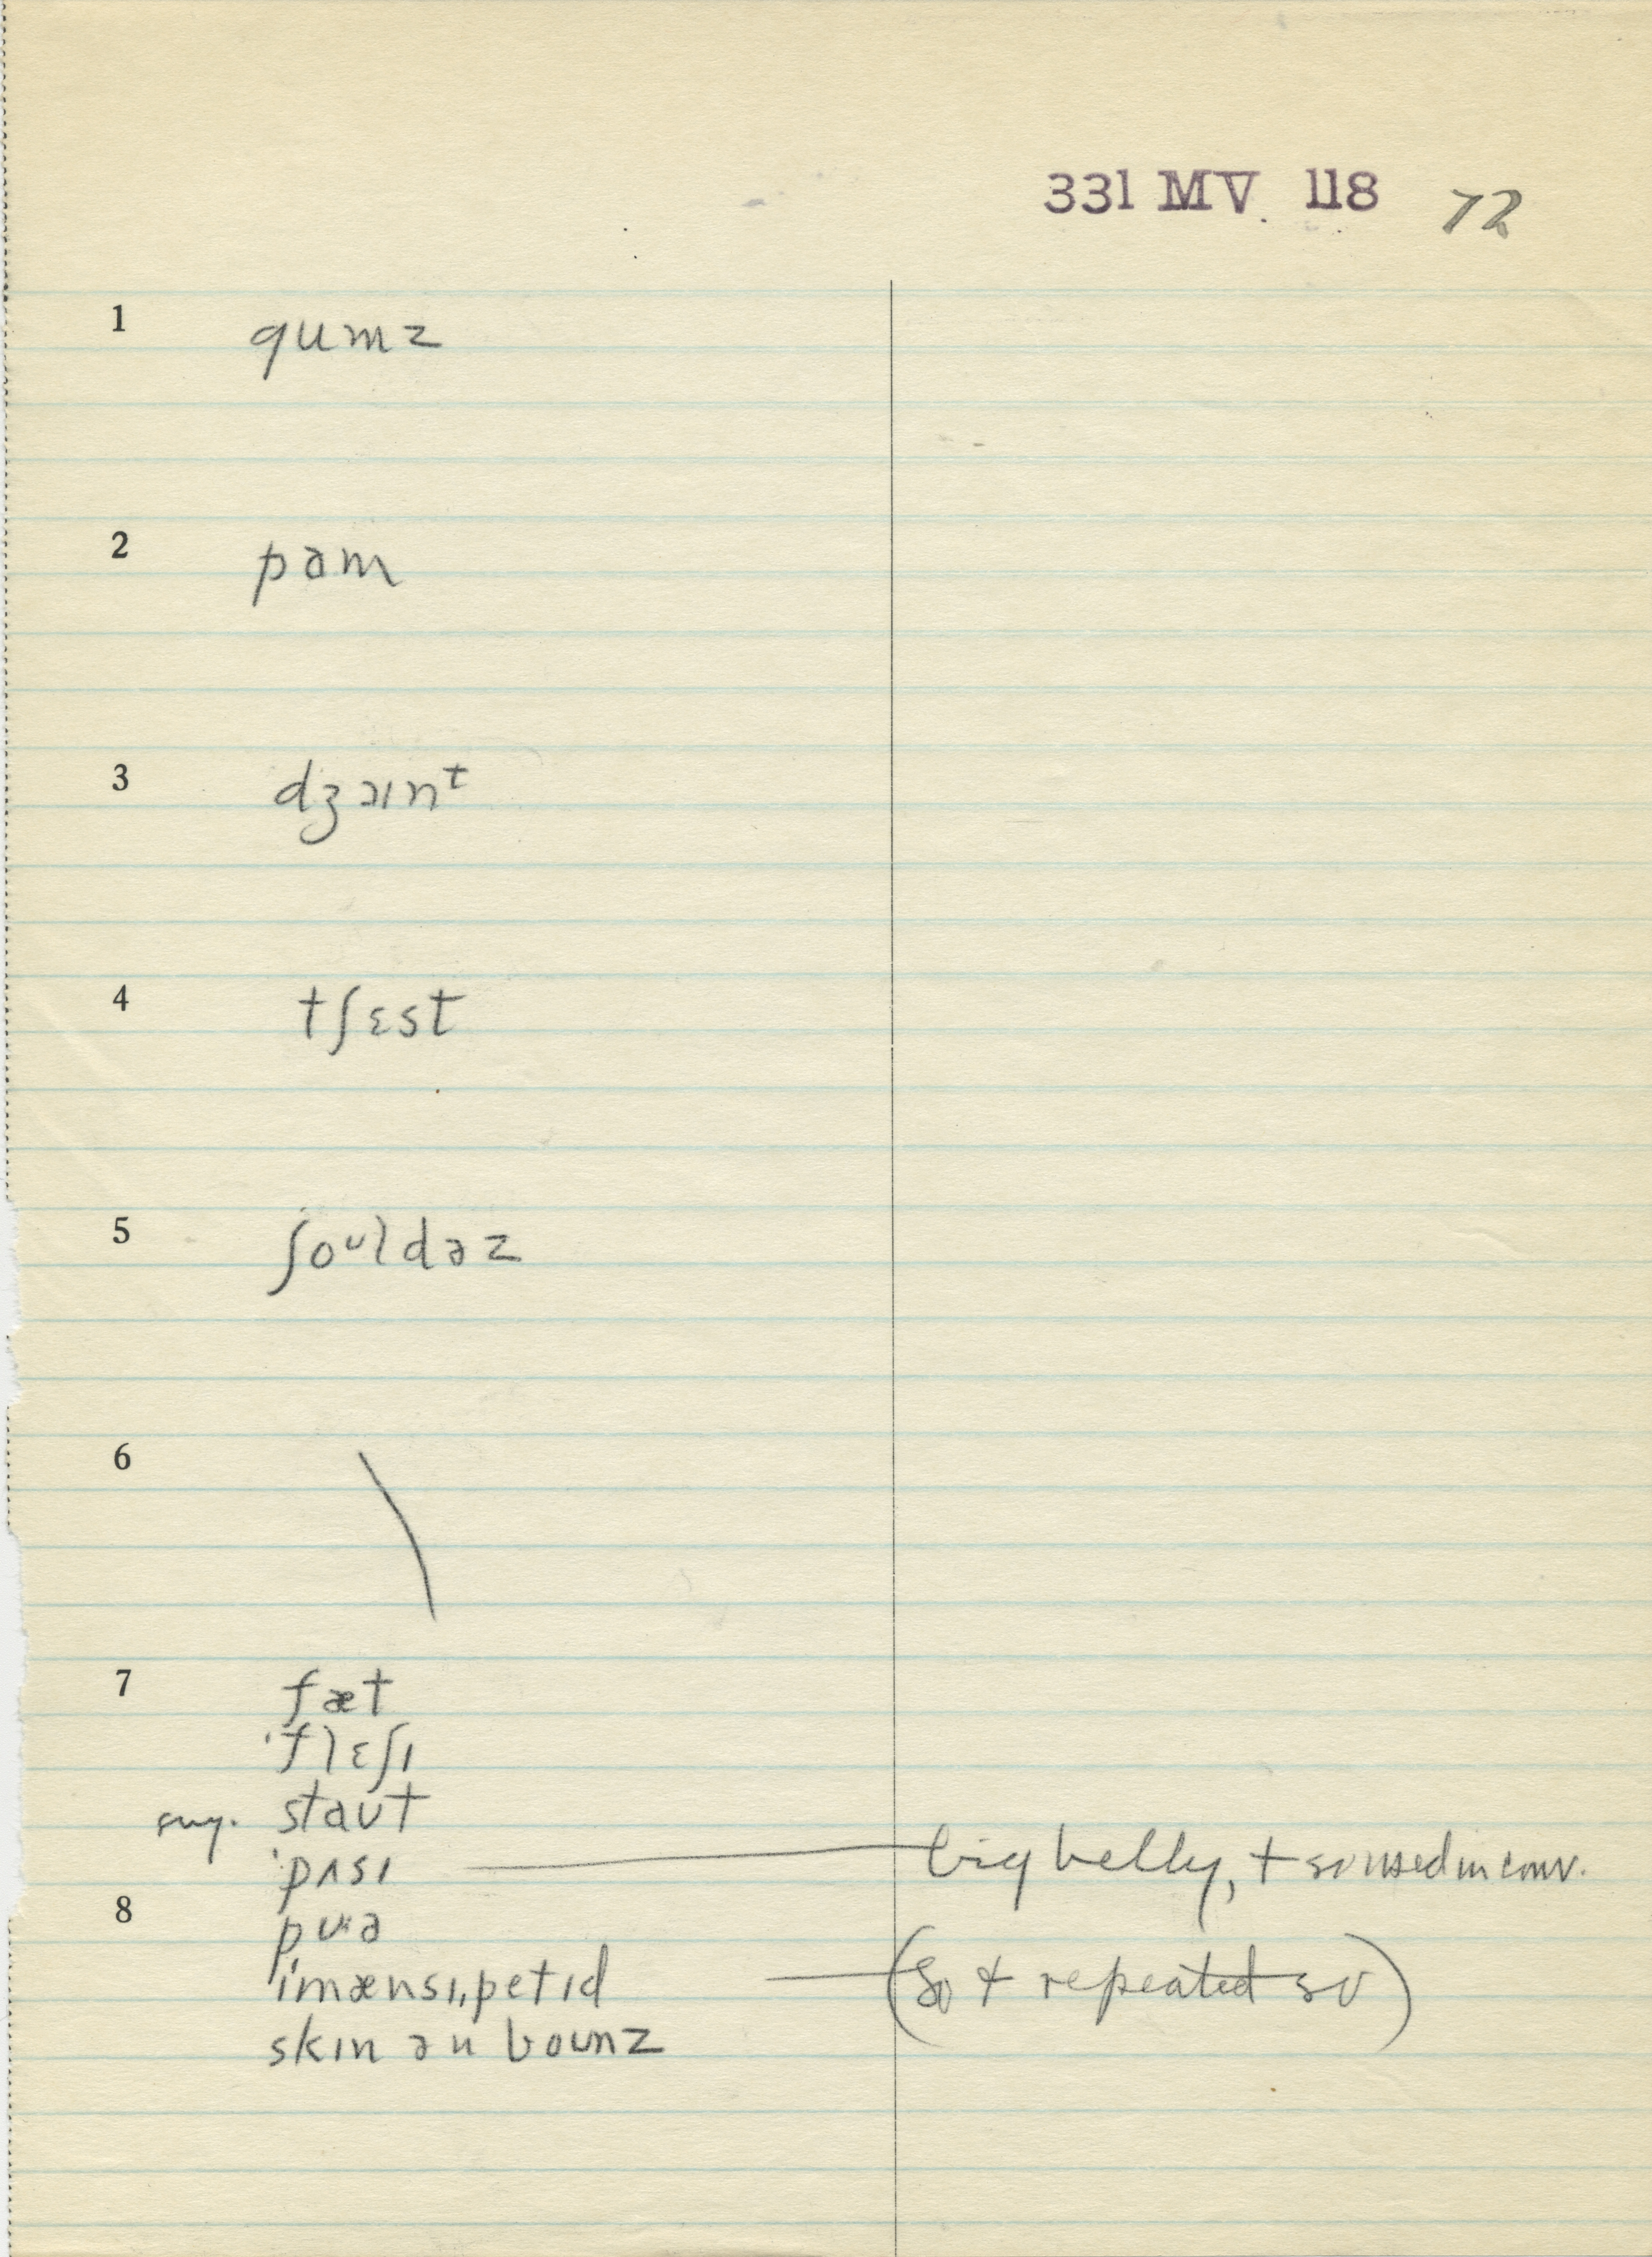 331 MV. 118 72
1 gumz
2 pɑm
3 dʒɔɪnᵗ
4 tʃɛst
5 ʃoᶷldəz
6
7 fæt
ˈflɛʃɪ
sug. staut
ˈpʌsɪ — big belly, + so used in conv.
8 pʊə
iˈmænsɪˌpetɪd — (so & repeated so)
skɪn ən bounz